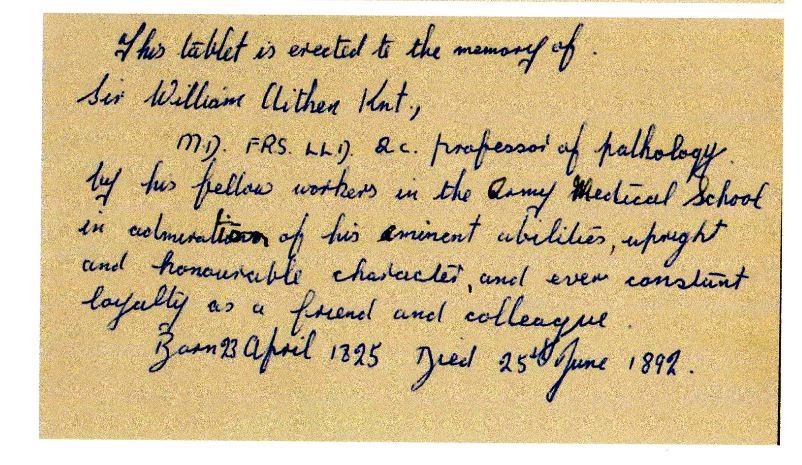 This tablet is erected to the memory of.
Sir William Aitken Knt.,
M.D. FRS. LL.D. &c. professor of pathology.
by his fellow workers in the Army Medical School
in admiration of his eminent abilities, upright
and honourable character, and ever constant
loyalty as a friend and colleague.
Born 23 April 1825 Died 25th June 1892.